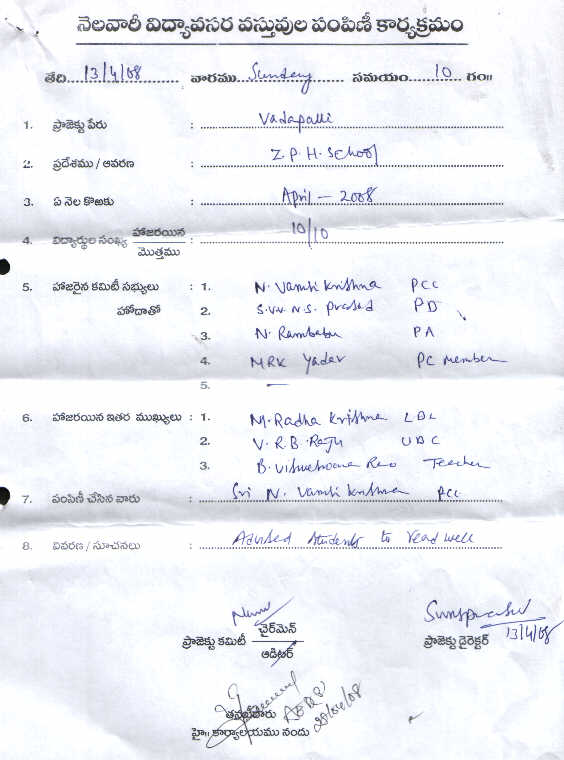 నెలవారీ విద్యావసర వస్తువుల పంపిణీ కార్యక్రమం
తేది 13/4/08 వారము Sunday సమయం 10 గం॥
1. ప్రాజెక్టు పేరు : Vadapalli
2. ప్రదేశము / ఆవరణ : Z.P.H. School
3. ఏ నెల కొఱకు : April - 2008
4. విద్యార్థుల సంఖ్య హాజరయిన / మొత్తము : 10/10
5. హాజరైన కమిటీ సభ్యులు : 1. N. Vamsi Krishna PCC
హోదాతో 2. S.V.V.N.S. Prasad PD
3. N. Rambabu PA
4. MRK Yadav PC member
5. —
6. హాజరయిన ఇతర ముఖ్యులు : 1. M. Radha Krishna LDC
2. V.R.B. Raju UDC
3. B. Vishweswara Rao Teacher
7. పంపిణీ చేసిన వారు : Sri N. Vamsi Krishna PCC
8. వివరణ / సూచనలు : Advised students to read well
ప్రాజెక్టు కమిటీ చైర్‌మెన్ / ఆడిటర్
ప్రాజెక్టు డైరెక్టర్ 13/4/08
తనిఖీదారు
హై॥ కార్యాలయము నందు 28/04/08